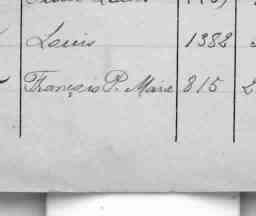 Louis 1388
François P. Marie 815